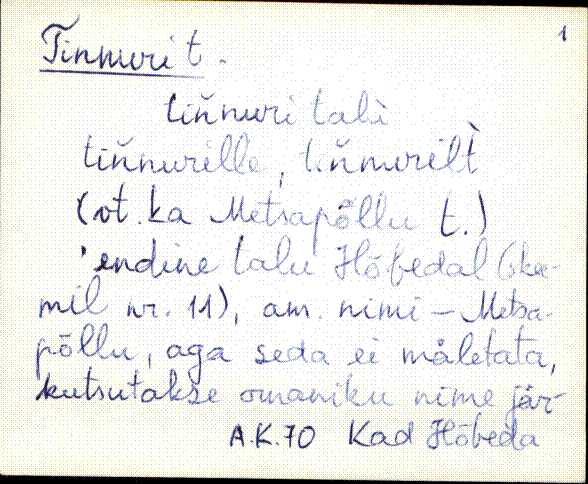 1
Tinnuri t.
tiňnuri talù
tiňnurille, tiňnurilt̀
(vt. ka Metsapõllu t.)
'endine talu Hõbedal (skee-
mil nr. 11), am. nimi – Metsa-
põllu, aga seda ei mäletata,
kutsutakse omaniku nime jär-
A.K.70 Kad Hõbeda